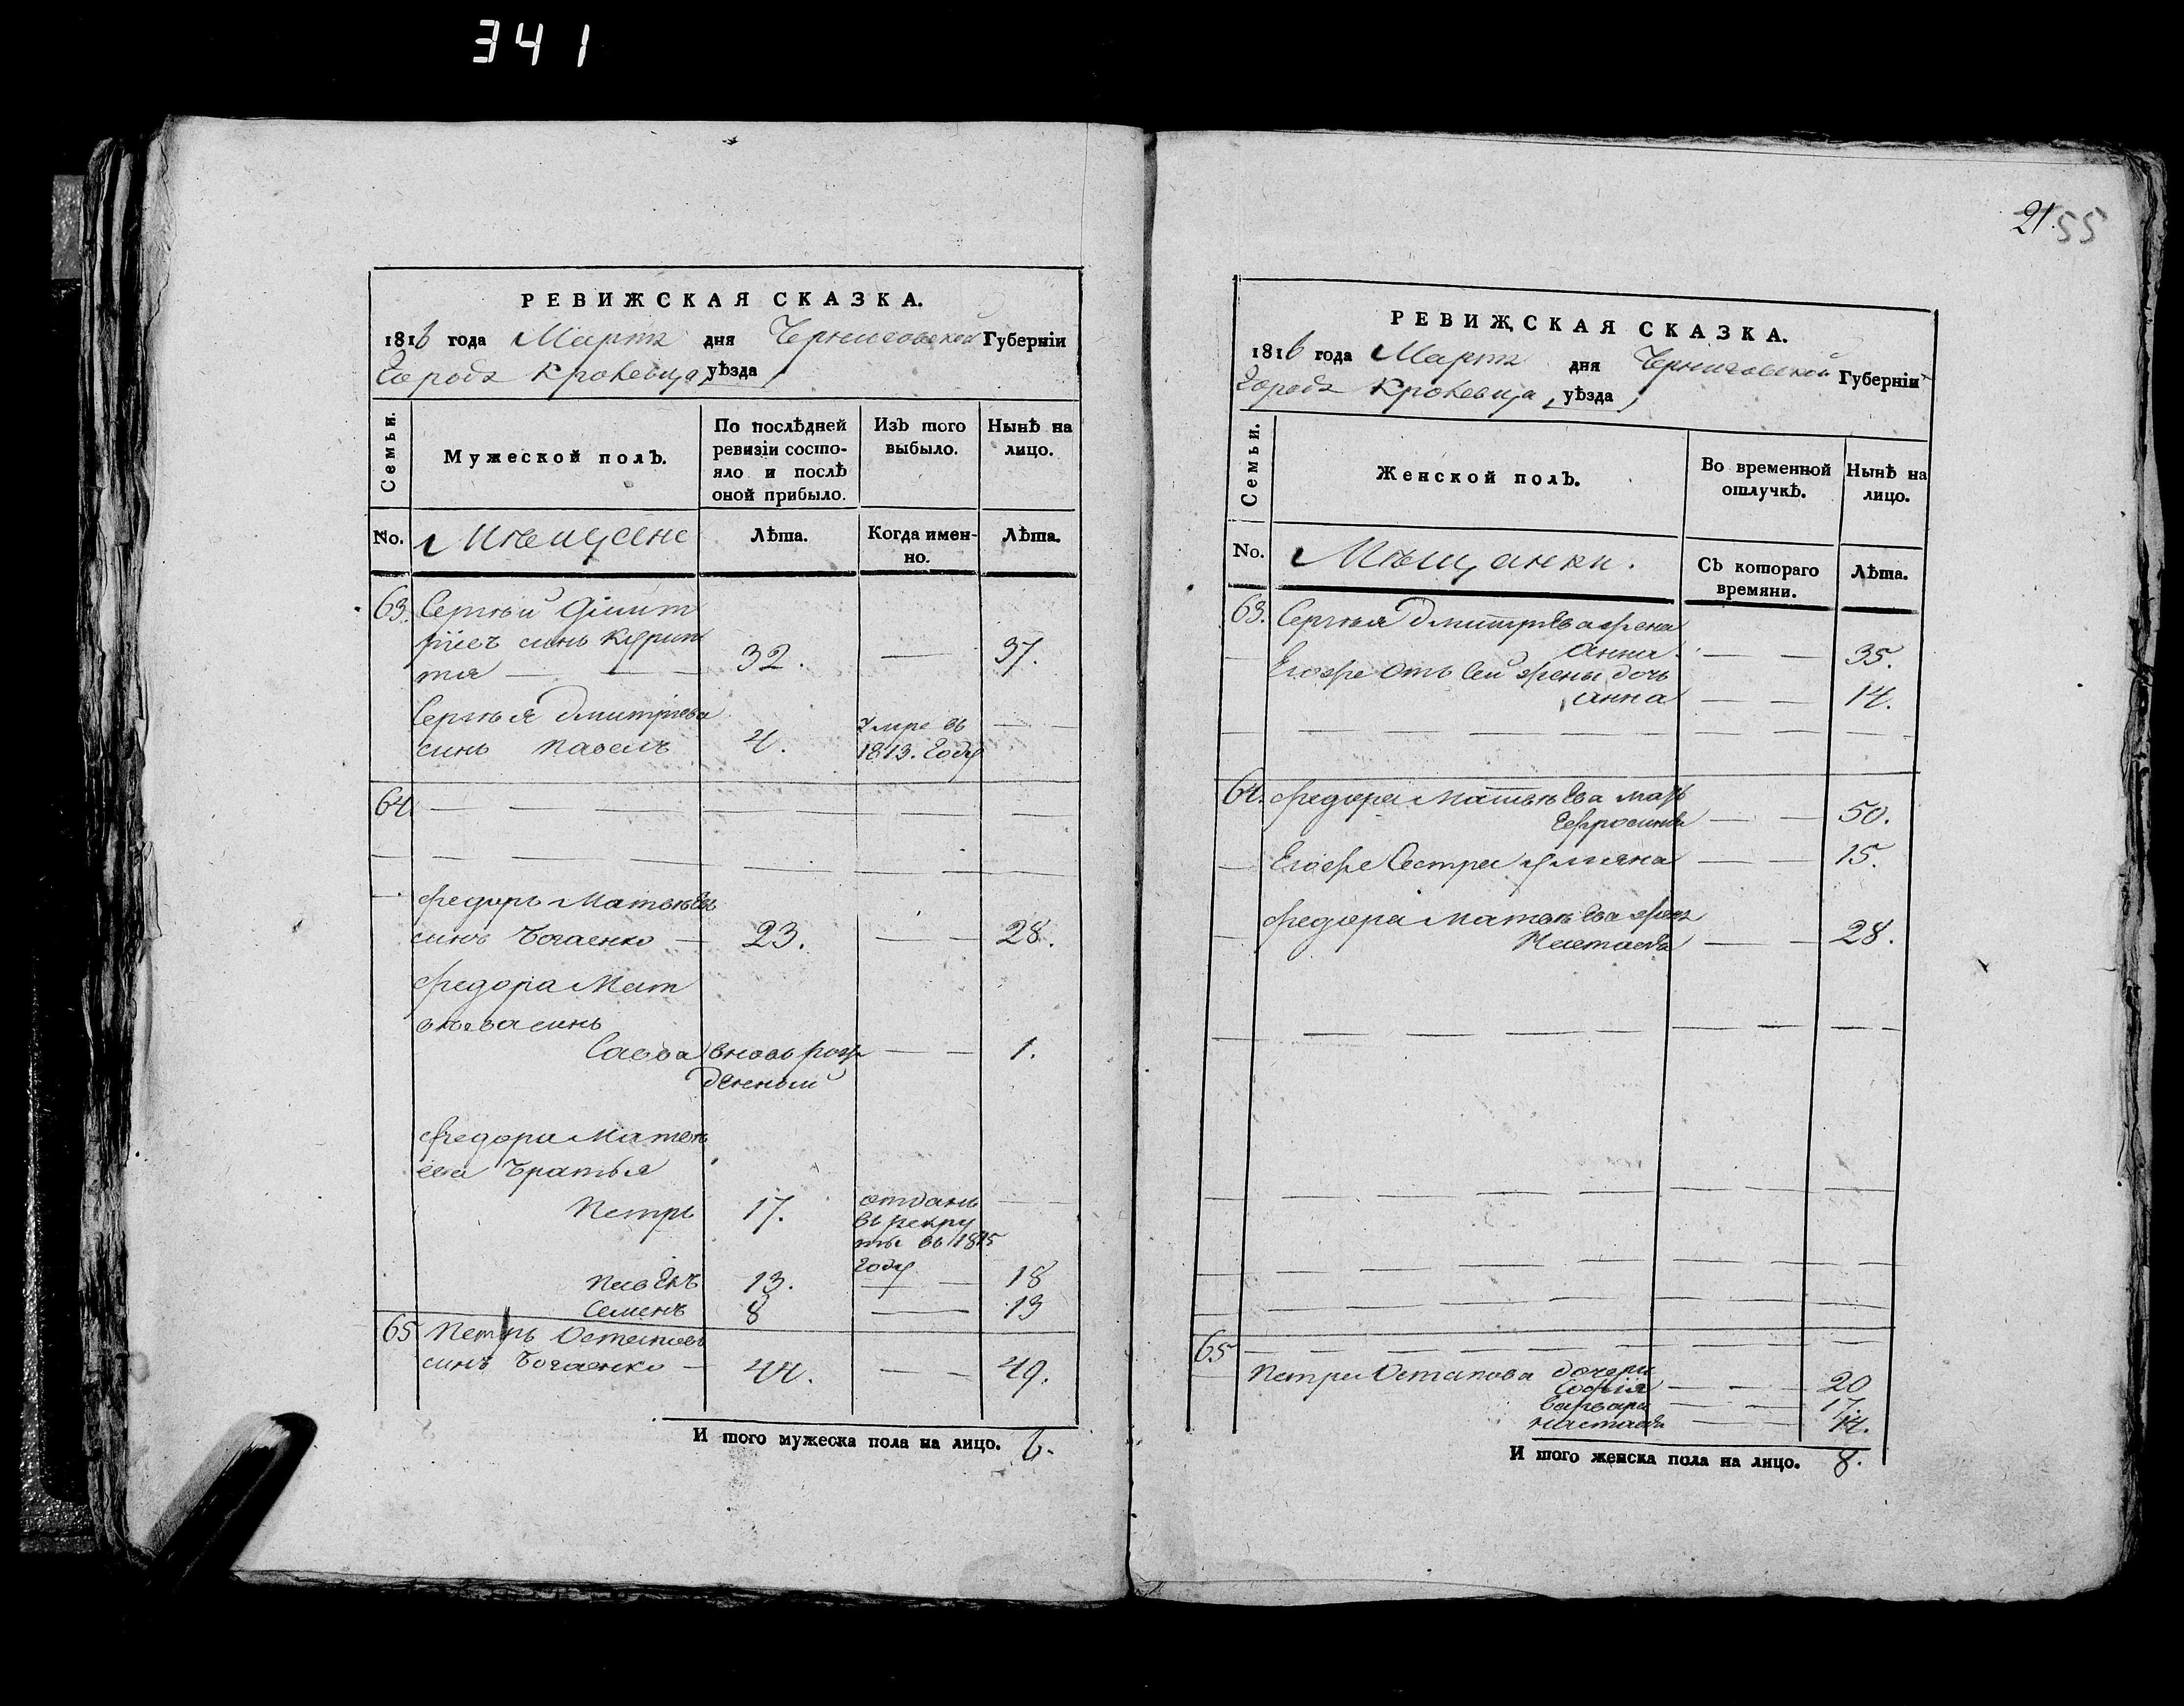 341
РЕВИЖСКАЯ СКАЗКА.
1816 года Мартъ дня Черниговской Губерніи
Городъ Кролевца, уѣзда
Семьи.
Мужеской полъ.
По послѣдней ревизіи состояло и послѣ оной прибыло.
Изъ того выбыло.
Нынѣ на лицо.
No.
Мѣщане
Лѣта.
Когда именно.
Лѣта.
63. Сергѣй Дмит
ріевъ синъ
32. 37.
Сергѣя Дмитріева
синъ Павелъ 4. Умре въ
1813. Году
64.
Федоръ Матвѣевъ
синъ Богаенко 23. 28.
Федора Мат
вѣева синъ
Савва вновь рож
денный 1.
Федора Матвѣ
ева братья
Петръ 17. отданъ
въ рекру
ты въ 1815
Году
13. 18
Семенъ 8 13
65 Петръ Остаповъ
синъ Богаенко 44. 49.
И того мужеска пола на лицо. 6.
21. 55
РЕВИЖСКАЯ СКАЗКА.
1816 года Мартъ дня Черниговской Губерніи
Городъ Кролевца, уѣзда
Семьи.
Женской полъ.
Во временной отлучкѣ.
Нынѣ на лицо.
No.
Мѣщанки.
Съ котораго времяни.
Лѣта.
63. Сергѣя Дмитріева жена
Анна 35.
Егожe отъ сей жены дочь
Анна 14.
64. Федора Матвѣева мать
Ефросинія 50.
Егоже Сестра Уляна 15.
Федора Матвѣева жена
Настасія 28.
65
Петра Остапова дочери
Софія 20
Варвара 17.
Настасія 14.
И того женска пола на лицо. 8.